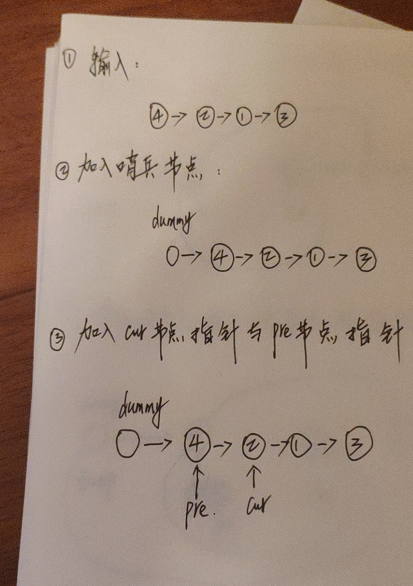 ① 输入：
④→②→①→③
② 加入哨兵节点：
dummy
○→④→②→①→③
③ 加入cur节点指针与pre节点指针
dummy
○→④→②→①→③
↑ ↑
pre. cur